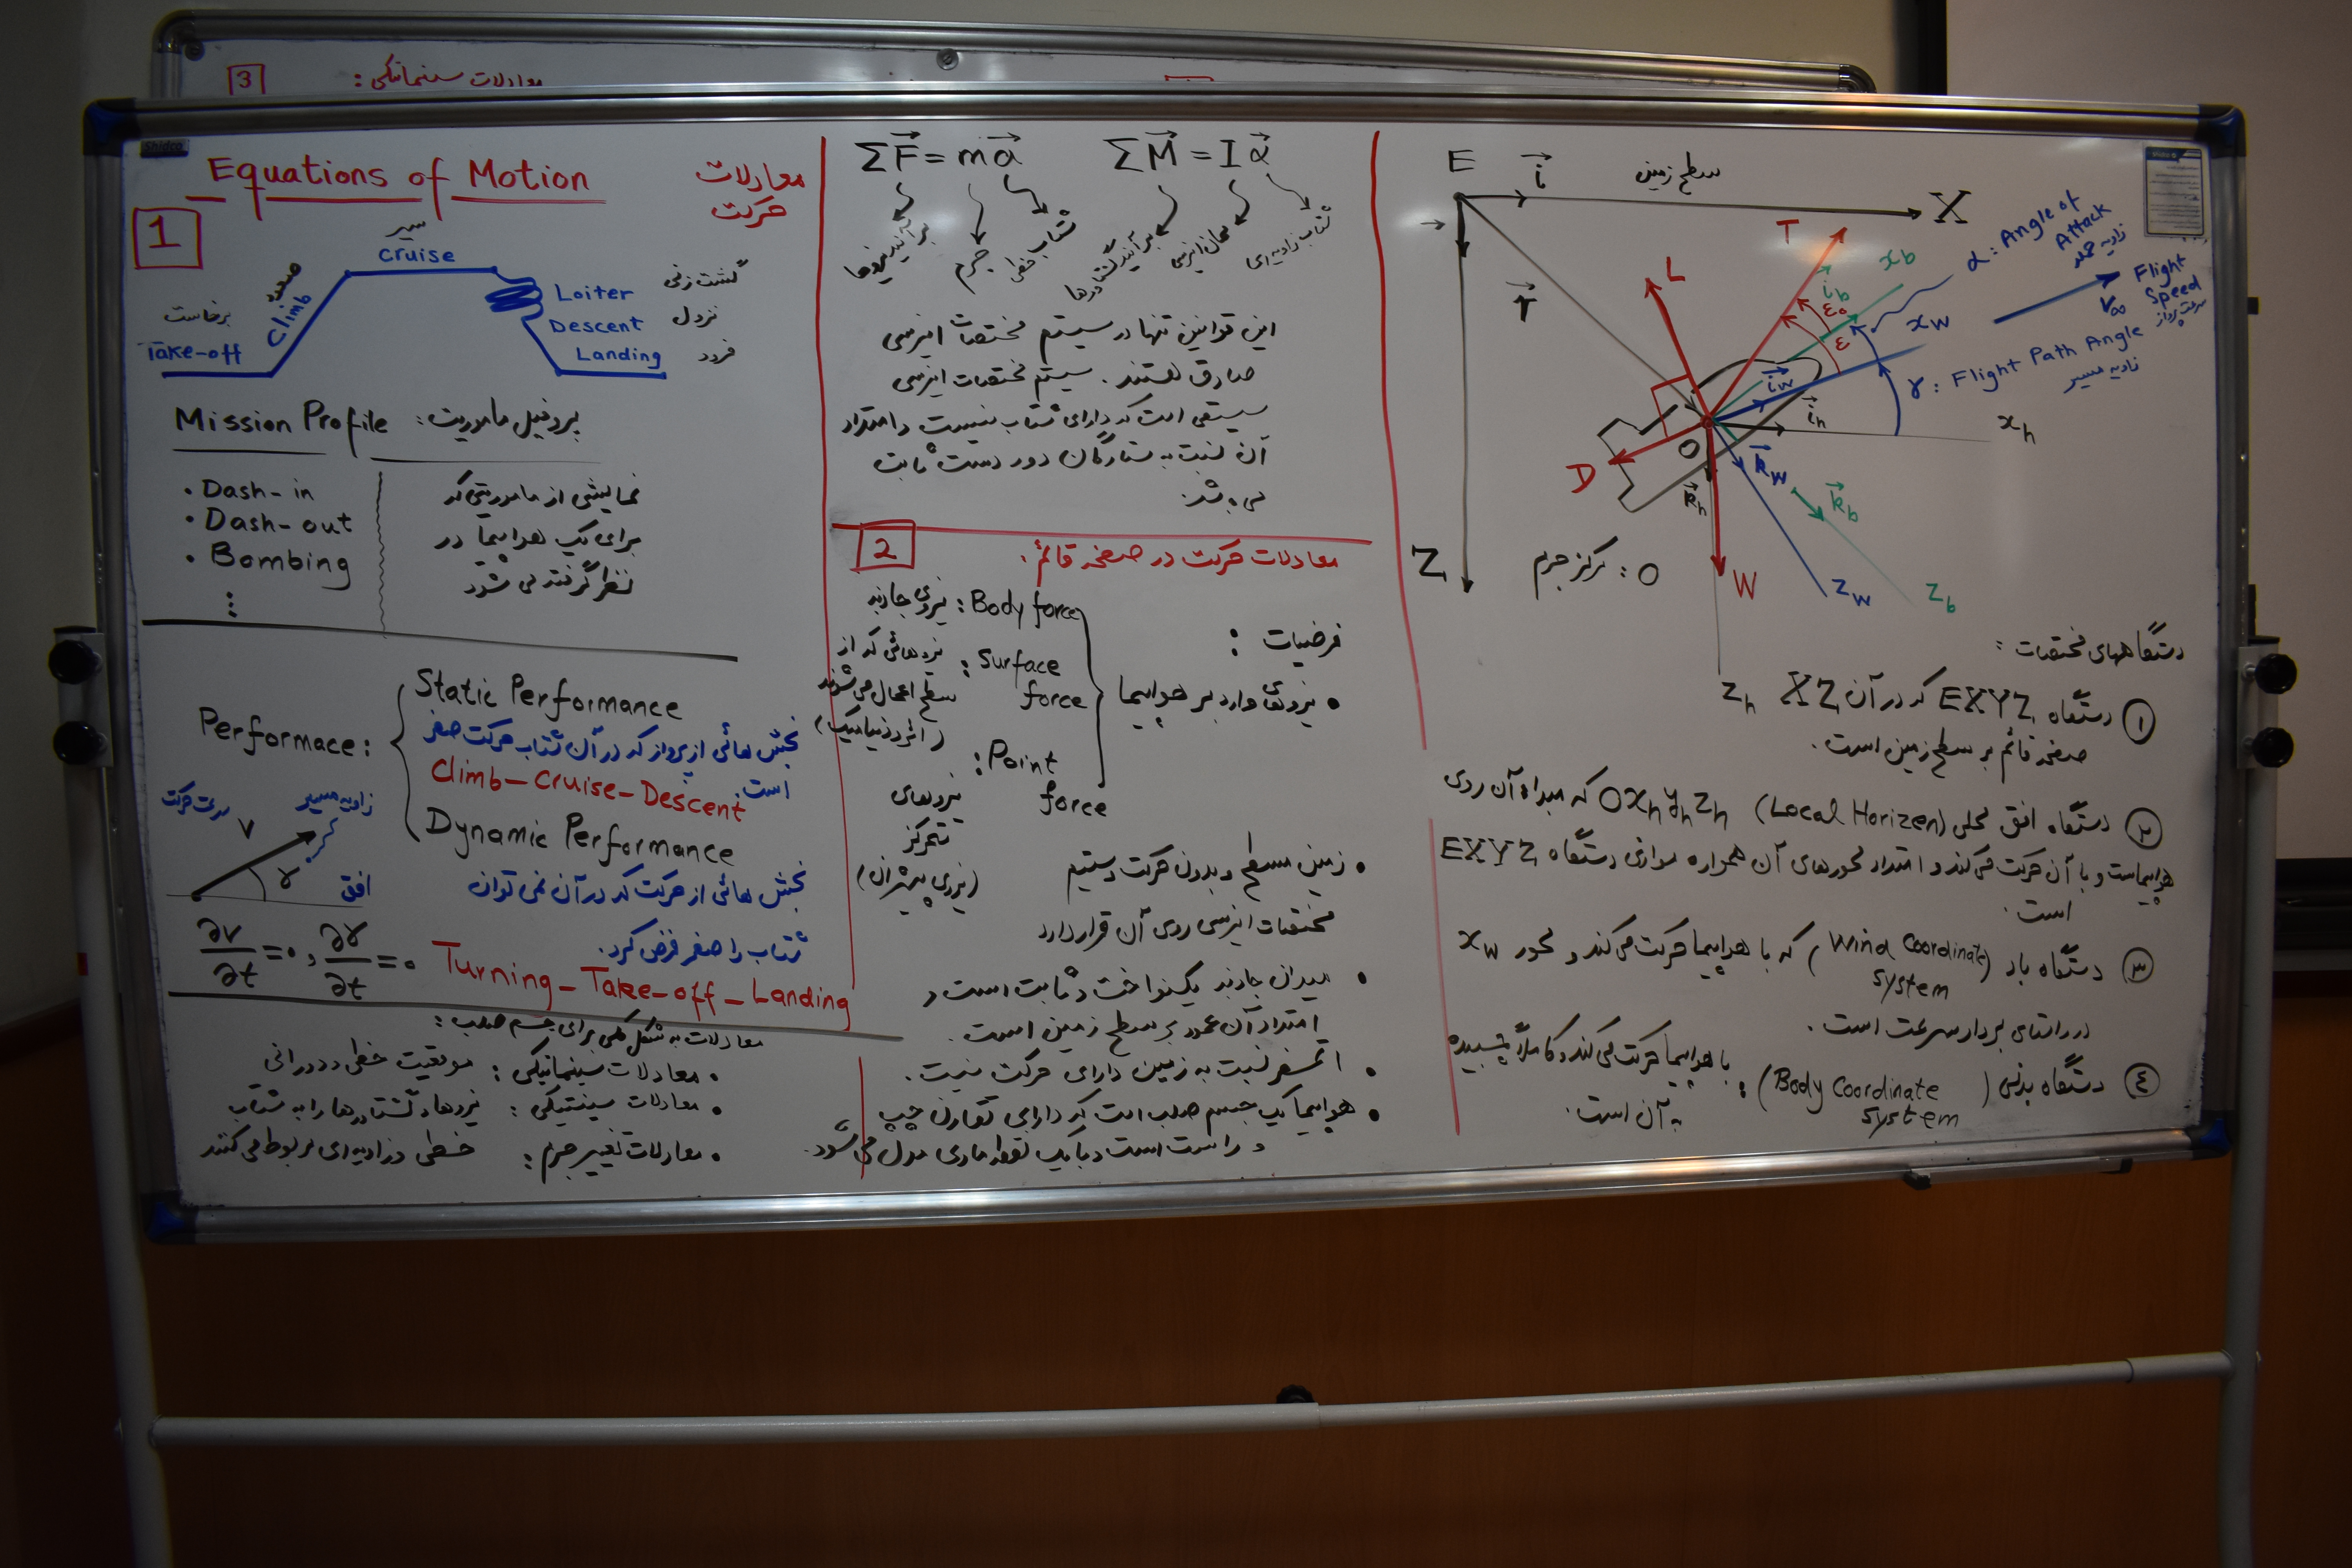 3
معادلات سینماتیکی :
Shidco
Equations of Motion
معادلات
حرکت
1
برخاست
Take-off
صعود
Climb
سیر
Cruise
Loiter
گشت زنی
Descent
نزول
Landing
فرود
Mission Profile
پروفیل ماموریت :
• Dash-in
• Dash-out
• Bombing
نمایشی از ماموریتی که
برای یک هواپیما در
نظر گرفته می شود
Performace :
Static Performance
بخش هائی از پرواز که در آن شتاب حرکت صفر
است.
Climb-Cruise-Descent
Dynamic Performance
بخش هائی از حرکت که در آن نمی توان
شتاب را صفر فرض کرد.
Turning-Take-off-Landing
سرعت حرکت
V
زاویه مسیر
γ
افق
∂V/∂t = 0 , ∂γ/∂t = 0
معادلات به شکل کلی برای جسم صلب :
• معادلات سینماتیکی : موقعیت خطی و دورانی
• معادلات سینتیکی : نیروها و گشتاورها را به شتاب
خطی و زاویه ای مربوط می کنند
• معادلات تغییر جرم :
ΣF = ma
ΣM = Iα
برآیند نیروها
جرم
شتاب خطی
برآیند گشتاورها
ممان اینرسی
شتاب زاویه ای
این قوانین تنها در سیستم مختصات اینرسی
صادق هستند. سیستم مختصات اینرسی
سیستمی است که دارای شتاب نیست و امتداد
آن نسبت به ستارگان دور دست ثابت
می باشد.
2
معادلات حرکت در صفحه قائم :
فرضیات :
• نیروهای وارد بر هواپیما
Body force : نیروی جاذبه
Surface force : نیروهائی که از
سطح اعمال می شوند
(آئرودینامیک)
Point force :
نیروهای
متمرکز
(نیروی پیشران)
• زمین مسطح و بدون حرکت و سیستم
مختصات اینرسی روی آن قرار دارد
• میدان جاذبه یکنواخت و ثابت است و
امتداد آن عمود بر سطح زمین است.
• اتمسفر نسبت به زمین دارای حرکت نیست.
• هواپیما یک جسم صلب است که دارای تقارن چپ
و راست است و با یک نقطه مادی مدل می شود.
E
i
سطح زمین
X
r
Z
L
T
D
W
O
x_b
i_b
ε₀
ε
x_w
i_w
i_h
x_h
k_w
k_b
k_h
z_w
z_b
z_h
α : Angle of
Attack
زاویه حمله
Flight
Speed
V∞
سرعت پرواز
γ : Flight Path Angle
زاویه مسیر
O : مرکز جرم
دستگاههای مختصات :
① دستگاه EXYZ که در آن XZ
صفحه قائم بر سطح زمین است.
② دستگاه افق محلی (Local Horizen) Ox_h y_h z_h که مبدا آن روی
هواپیماست و با آن حرکت می کند و امتداد محورهای آن همواره موازی دستگاه EXYZ
است.
③ دستگاه باد (Wind Coordinate System) که با هواپیما حرکت می کند و محور x_w
در راستای بردار سرعت است.
④ دستگاه بدنی (Body Coordinate System) : با هواپیما حرکت می کند و کاملاً چسبیده
به آن است.